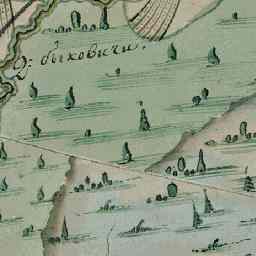 Д: быховичи.